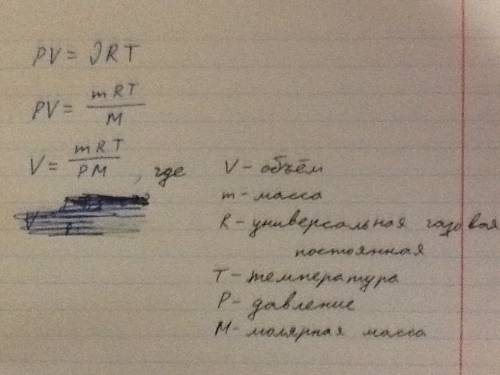 PV = νRT
PV = mRT/M
V = mRT/PM , где
V - объём
m - масса
R - универсальная газовая
постоянная
T - температура
P - давление
M - молярная масса